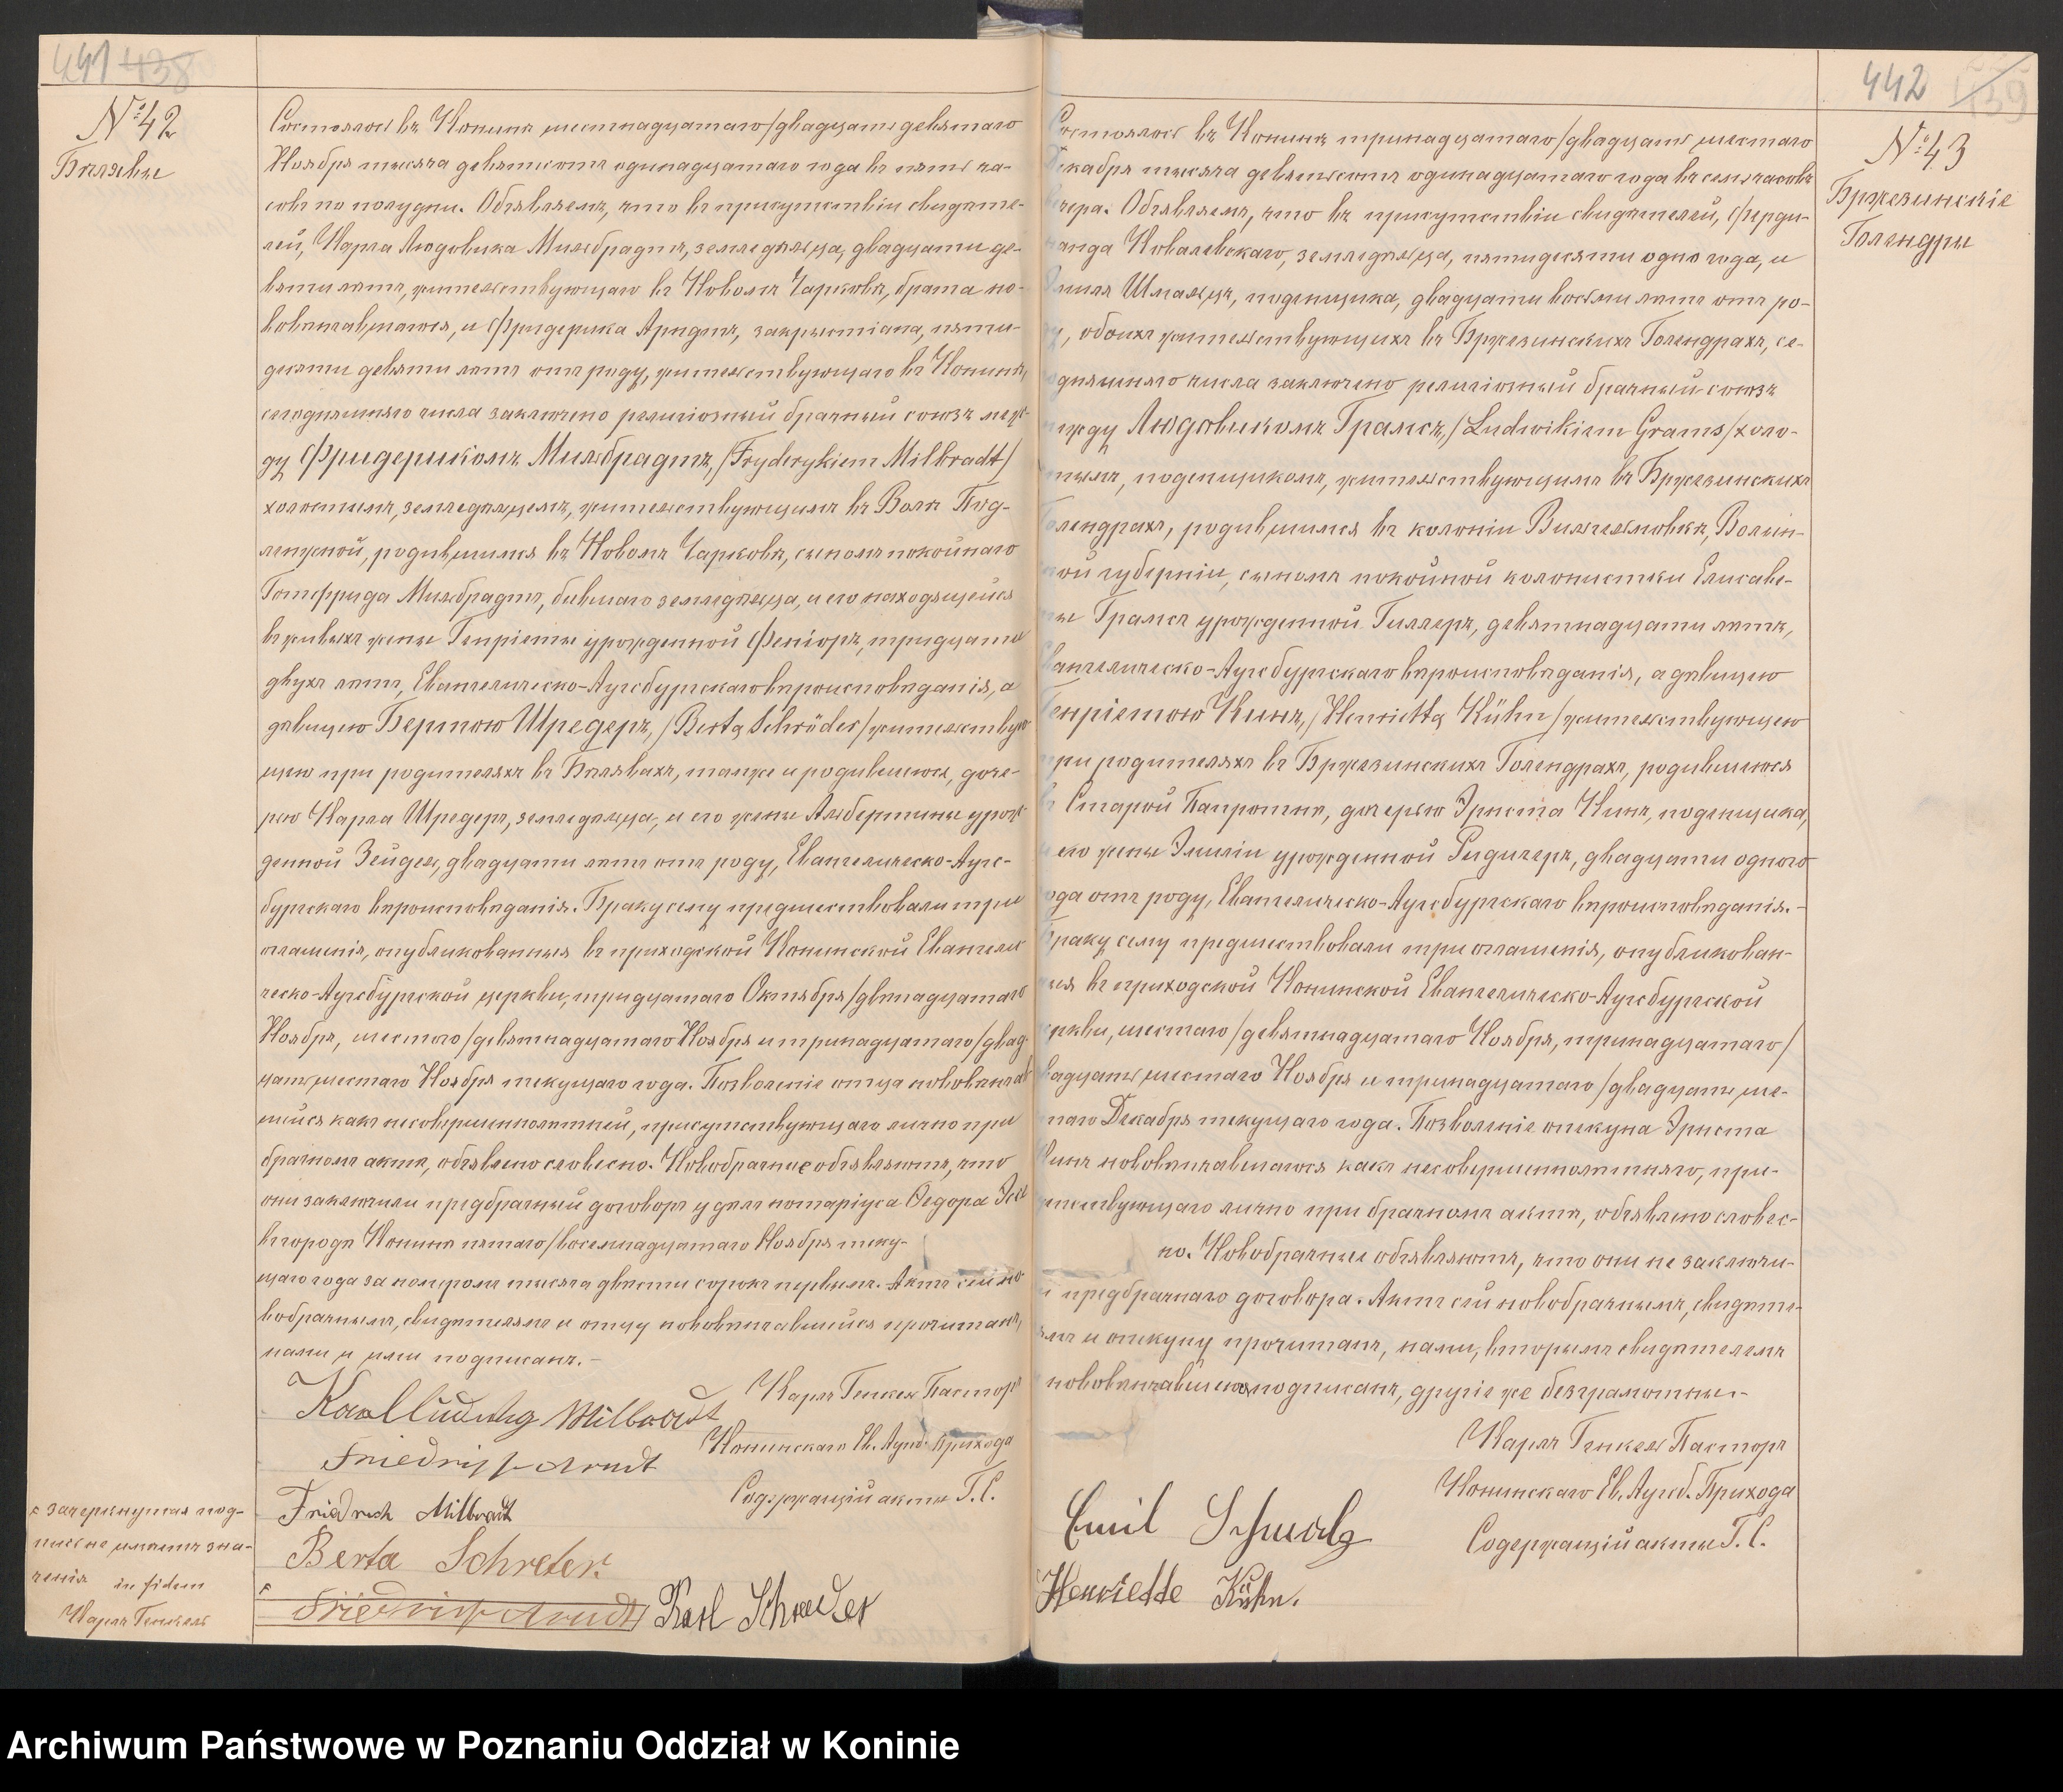 441 438
№ 42
Бѣлявы
Состоялось въ Конинѣ шестнадцатаго /двадцать девятаго
Ноября тысяча девятьсотъ одинадцатаго года въ пять ча-
совъ по полудни. Объявляемъ, что въ присутствіи свидѣте-
лей, Карла Людовика Мильбрадтъ, земледѣльца, двадцати де-
вяти лѣтъ, жительствующаго въ Новомъ Чарковѣ, брата но-
вовѣнчавшагося, и Фридерика Арндтъ, закрыстіана, пяти-
десяти девяти лѣтъ отъ роду, жительствующаго въ Конинѣ,
сегодняшняго числа заключено религіозный брачный союзъ меж-
ду Фридерикомъ Мильбрадтъ, /Fryderykiem Milbradt/
холостымъ, земледѣльцемъ, жительствующимъ въ Волѣ Под-
лежной, родившимся въ Новомъ Чарковѣ, сыномъ покойнаго
Готфрида Мильбрадтъ, бывшаго земледѣльца, и его находящейся
въ живыхъ жены Генріеты урожденной Феніоръ, тридцати
двухъ лѣтъ, Евангелическо-Аугсбургскаго вѣроисповѣданія, а
дѣвицею Бертою Шредеръ, /Berta Schröder/ жительству-
щею при родителяхъ въ Бѣлявахъ, таиже и родившеюся, доче-
рью Карла Шредеръ, земледѣльца, и его жены Альбертины урож-
денной Зейдель, двадцати лѣтъ отъ роду, Евангелическо-Аугс-
бургскаго вѣроисповѣданія. Браку сему предшествовали три
оглашенія, опубликованныя въ приходской Конинской Евангели-
ческо-Аугсбургской церкви, тридцатаго Октября /двѣнадцатаго
Ноября, шестого /девятнадцатаго Ноября и тринадцатаго /двад-
цать шестаго Ноября текущаго года. Позволеніе отца нововѣнчав-
шейся какъ несовершеннолѣтней, присутствующаго лично при
брачномъ актѣ, объявлено словесно. Новобрачные объявляютъ, что
они заключили предбрачный договоръ у дѣлъ нотаріуса Ѳедора
въ городѣ Конинѣ пятаго /восемнадцатаго Ноября теку-
щаго года за номеромъ тысяча двѣсти сорокъ первымъ. Актъ сей но-
вобрачнымъ, свидѣтелямъ и отцу нововѣнчавшейся прочитанъ,
нами и ими подписанъ.-
Karl Ludwig Milbradt
Карлъ Генкель Пасторъ
Friedrich Arndt
Конинскаго Ев. Аугсб. Прихода
Friedrich Milbradt
Содержащій акты Г. С.
Berta Schreter.
Friedrich Arndt Karl Schreder
зачеркнутая под-
пись не имѣетъ зна-
ченія in fidem
Карлъ Генкель
442 439
№ 43
Бржезинскіе
Голендры
Состоялось въ Конинѣ тринадцатаго /двадцать шестаго
Декабря тысяча девятьсотъ одинадцатаго года въ семь часовъ
вечера. Объявляемъ, что въ присутствіи свидѣтелей, Ферди-
нанда Ковалевскаго, земледѣльца, пятидесяти одно года, и
Эмиля Шмальцъ, поденщика, двадцати восьми лѣтъ отъ ро-
ду, обоихъ жительствующихъ въ Бржезинскихъ Голендрахъ, се-
годняшняго числа заключено религіозный брачный союзъ
между Людовикомъ Грамсъ, /Ludwikiem Grams/ холо-
стымъ, поденщикомъ, жительствующимъ въ Бржезинскихъ
Голендрахъ, родившимся въ колоніи Вильгельмовкѣ, Волын-
ской губерніи, сыномъ покойной колонистки Елисаве-
ты Грамсъ урожденной Гиллеръ, девятнадцати лѣтъ,
Евангелическо-Аугсбургскаго вѣроисповѣданія, а дѣвицею
Генріетою Кинъ, /Henrietta Kühn/ жительствующею
при родителяхъ въ Бржезинскихъ Голендрахъ, родившеюся
въ Старой Папротнѣ, дочерью Эрнста Кинъ, поденщика,
и его жены Эмиліи урожденной Ридигеръ, двадцати одного
года отъ роду, Евангелическо-Аугсбургскаго вѣроисповѣданія.-
Браку сему предшествовали три оглашенія, опубликован-
ныя въ приходской Конинской Евангелическо-Аугсбургской
церкви, шестаго /девятнадцатаго Ноября, тринадцатаго/
двадцать шестаго Ноября и тринадцатаго /двадцать ше-
стаго Декабря текущаго года. Позволеніе опекуна Эрнста
Кинъ нововѣнчавшагося какъ несовершеннолѣтняго, при-
сутствующаго лично при брачномъ актѣ, объявлено словес-
но. Новобрачные объявляютъ, что они не заключи-
ли предбрачнаго договора. Актъ сей новобрачнымъ, свидѣте-
лямъ и опекуну прочитанъ, нами, вторымъ свидѣтелемъ
нововѣнчавшеюся подписанъ, другіе же безграмотны.-
Карлъ Генкель Пасторъ
Конинскаго Ев. Аугсб. Прихода
Emil Schmalz
Содержащій акты Г. С.
Henriette Kühn.
Archiwum Państwowe w Poznaniu Oddział w Koninie